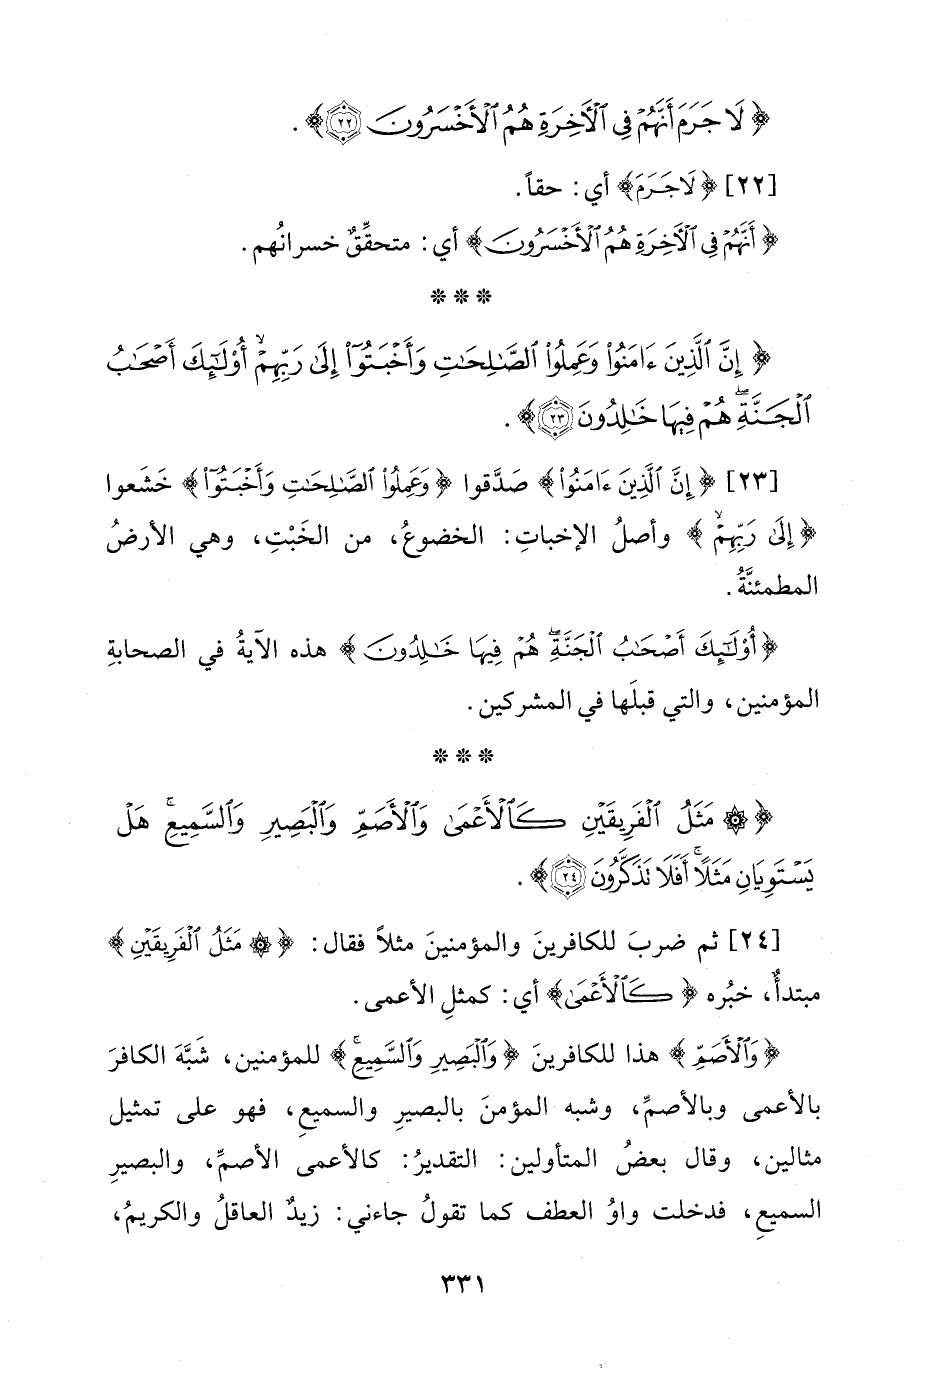 ﴿لَا جَرَمَ أَنَّهُمْ فِي ٱلْأَخِرَةِ هُمُ ٱلْأَخْسَرُونَ ۝٢٢﴾.
[٢٢] ﴿لَا جَرَمَ﴾ أي: حقاً.
﴿أَنَّهُمْ فِي ٱلْأَخِرَةِ هُمُ ٱلْأَخْسَرُونَ﴾ أي: متحقِّقٌ خسرانُهم.
* * *
﴿إِنَّ ٱلَّذِينَ ءَامَنُوا۟ وَعَمِلُوا۟ ٱلصَّٰلِحَٰتِ وَأَخْبَتُوٓا۟ إِلَىٰ رَبِّهِمْ ۙ أُو۟لَٰٓئِكَ أَصْحَٰبُ
ٱلْجَنَّةِ ۖ هُمْ فِيهَا خَٰلِدُونَ ۝٢٣﴾.
[٢٣] ﴿إِنَّ ٱلَّذِينَ ءَامَنُوا۟﴾ صَدَّقوا ﴿وَعَمِلُوا۟ ٱلصَّٰلِحَٰتِ وَأَخْبَتُوٓا۟﴾ خَشَعوا
﴿إِلَىٰ رَبِّهِمْ ۙ﴾ وأصلُ الإخباتِ: الخضوعُ، من الخَبْتِ، وهي الأرضُ
المطمئنَّةُ.
﴿أُو۟لَٰٓئِكَ أَصْحَٰبُ ٱلْجَنَّةِ ۖ هُمْ فِيهَا خَٰلِدُونَ﴾ هذه الآيةُ في الصحابةِ
المؤمنين، والتي قبلَها في المشركين.
* * *
﴿۞ مَثَلُ ٱلْفَرِيقَيْنِ كَٱلْأَعْمَىٰ وَٱلْأَصَمِّ وَٱلْبَصِيرِ وَٱلسَّمِيعِ ۚ هَلْ
يَسْتَوِيَانِ مَثَلًا ۚ أَفَلَا تَذَكَّرُونَ ۝٢٤﴾.
[٢٤] ثم ضربَ للكافرينَ والمؤمنينَ مثلاً فقال: ﴿۞ مَثَلُ ٱلْفَرِيقَيْنِ﴾
مبتدأٌ، خبرُه ﴿كَٱلْأَعْمَىٰ﴾ أي: كمثلِ الأعمى.
﴿وَٱلْأَصَمِّ﴾ هذا للكافرينَ ﴿وَٱلْبَصِيرِ وَٱلسَّمِيعِ ۚ﴾ للمؤمنين، شَبَّهَ الكافرَ
بالأعمى وبالأصمِّ، وشبه المؤمنَ بالبصيرِ والسميعِ، فهو على تمثيل
مثالين، وقال بعضُ المتأولين: التقديرُ: كالأعمى الأصمِّ، والبصيرِ
السميعِ، فدخلت واوُ العطف كما تقولُ جاءني: زيدٌ العاقلُ والكريمُ،
٣٣١